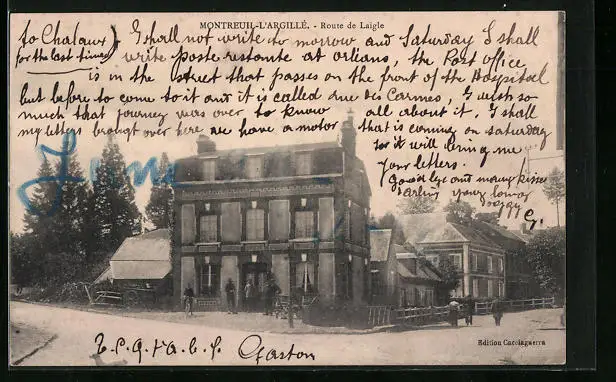 MONTREUIL-L'ARGILLÉ. - Route de Laigle
to Chalaux) I shall not write to morrow and Saturday I shall
for the last time write poste restante at orleans, the Post Office
is in the street that passes on the front of the Hospital
but before to come to it and it is called rue des Carmes, I wish so
much that journey was over to know all about it. I shall
my letters brougt over here we have a motor that is coming on saturday
so it will bring me
your letters.
Good bye and many kisses
your loving
G.
Gaston
Edition Caccinguerra